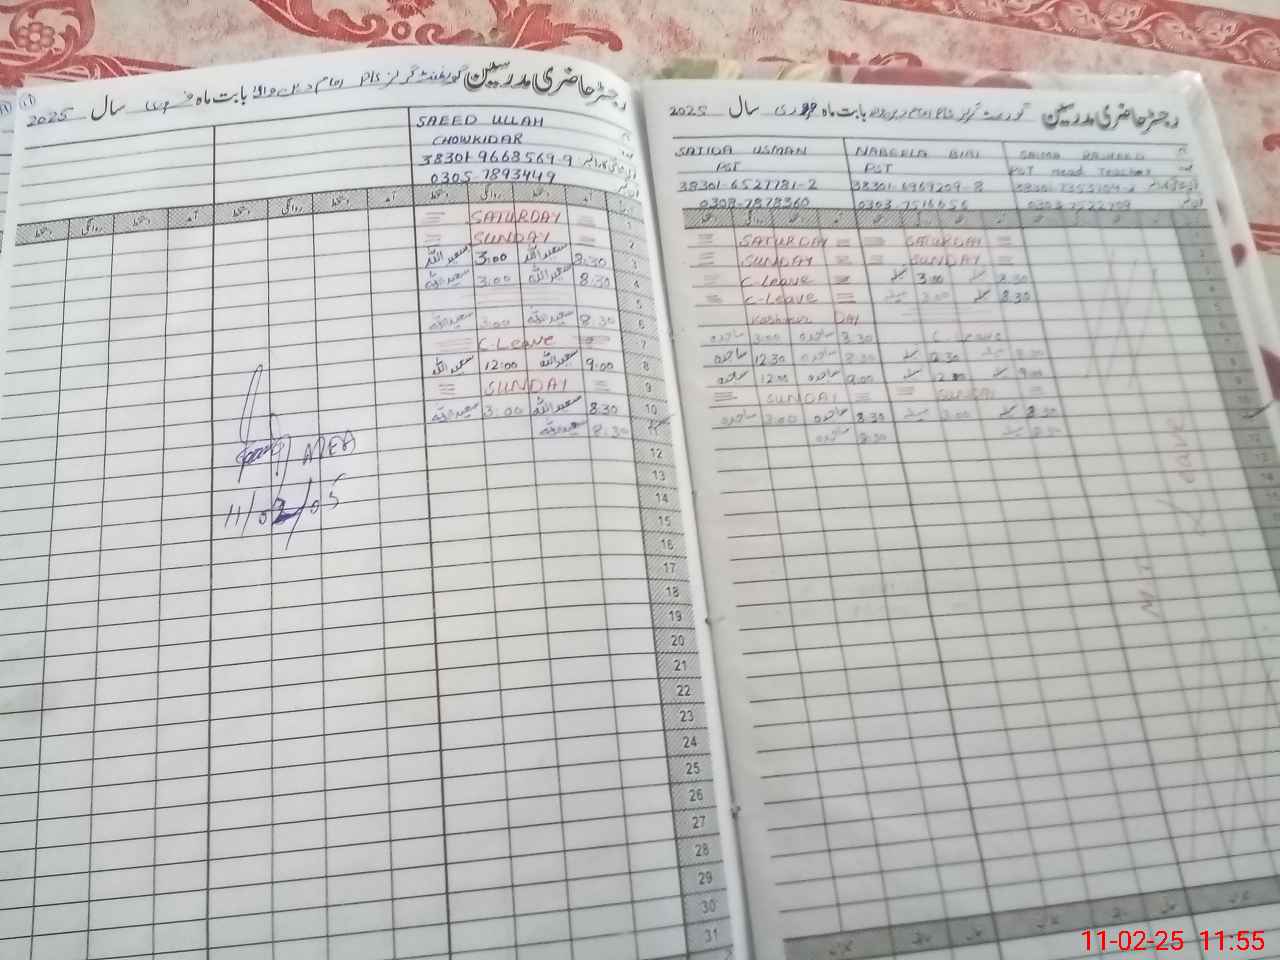 رجسٹر حاضری مدرسین گورنمنٹ گرلز P/S بابت ماہ فروری سال 2025
SAEED ULLAH
CHOWKIDAR
38301-9668569-9
0305-7893449
آمد دستخط روانگی دستخط آمد دستخط روانگی دستخط آمد دستخط روانگی دستخط
1 = SATURDAY =
2 = SUNDAY =
3 8:30 سعید اللہ 3:00 سعید اللہ
4 8:30 سعید اللہ 3:00 سعید اللہ
5
6 8:30 سعید اللہ 3:00 سعید اللہ
7 = C-LEAVE =
8 9:00 سعید اللہ 12:00 سعید اللہ
9 = SUNDAY =
10 8:30 سعید اللہ 3:00 سعید اللہ
11 8:30 سعید اللہ
12
13
14
15
16
17
18
19
20
21
22
23
24
25
26
27
28
29
30
31
AEO
11/02/05
رجسٹر حاضری مدرسین بابت ماہ فروری سال 2025
SAJIDA USMAN NABEELA BIBI SAIMA RASHEED
PST PST PST Head Teacher
38301-6527781-2
0308-7878360
= SATURDAY = = SATURDAY =
= SUNDAY = = SUNDAY =
= C-Leave = 3:00 8:30
= C-Leave = 3:00 8:30
Kashmir DAY
ساجدہ 3:00 ساجدہ 8:30 C-Leave
ساجدہ 12:30 ساجدہ 8:30 12:30 8:30
ساجدہ 12:00 ساجدہ 9:00 12:00 9:00
= SUNDAY = = SUNDAY =
ساجدہ 3:00 ساجدہ 8:30 3:00 8:30
ساجدہ 8:30 8:30
Leave
11-02-25 11:55